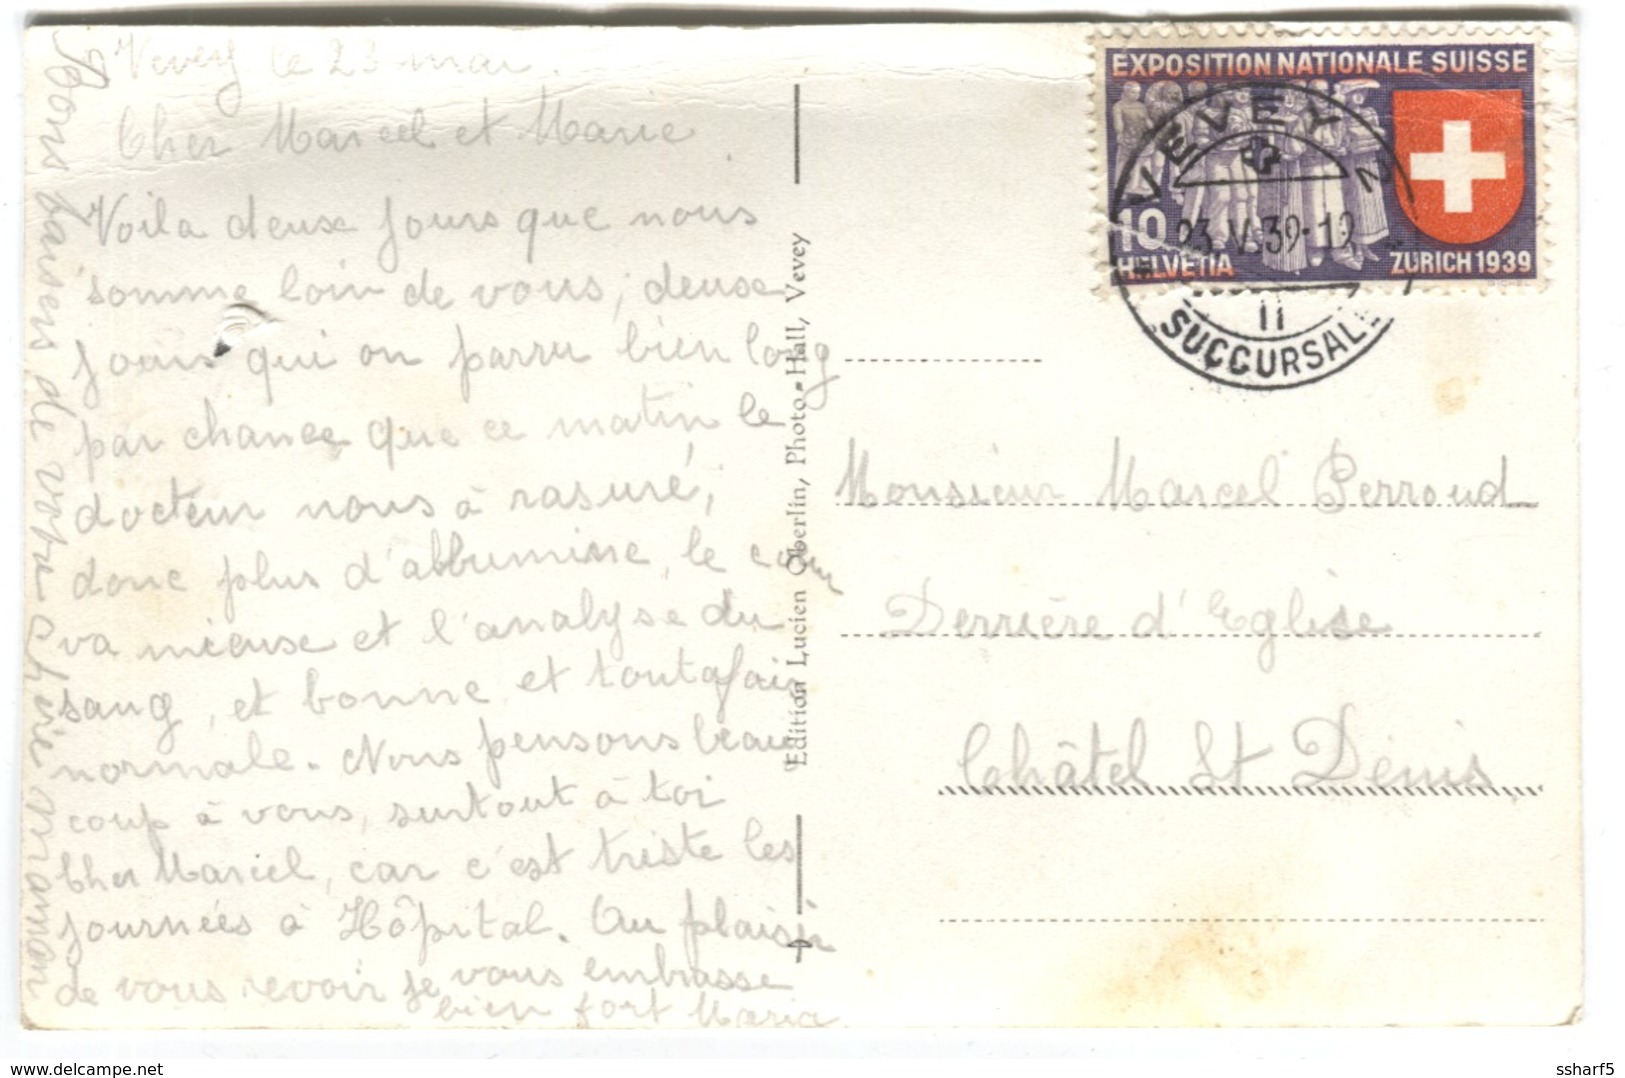 Vevey le 23 mai.
Cher Marcel et Marie
Voila deuse jours que nous
somme loin de vous, deuse
jours qui on parru bien long
par chance que ce matin le
docteur nous à rasuré,
donc plus d'albumine, le cœur
va mieuse et l'analyse du
sang, et bonne et toutafait
normale. Nous pensons beau
coup à vous, surtout à toi
Cher Marcel, car c'est triste les
journées à Hôpital. Au plaisir
de vous revoir je vous embrasse
bien fort Maria
Bons baisers de votre chérie
Edition Lucien Oberlin, Photo-Hall, Vevey
EXPOSITION NATIONALE SUISSE
10
HELVETIA
ZURICH 1939
VEVEY 2
23.V.39-19
II
SUCCURSALE
Monsieur Marcel Perroud
Derrière d'Eglise
Châtel St Denis
www.delcampe.net
ssharf5